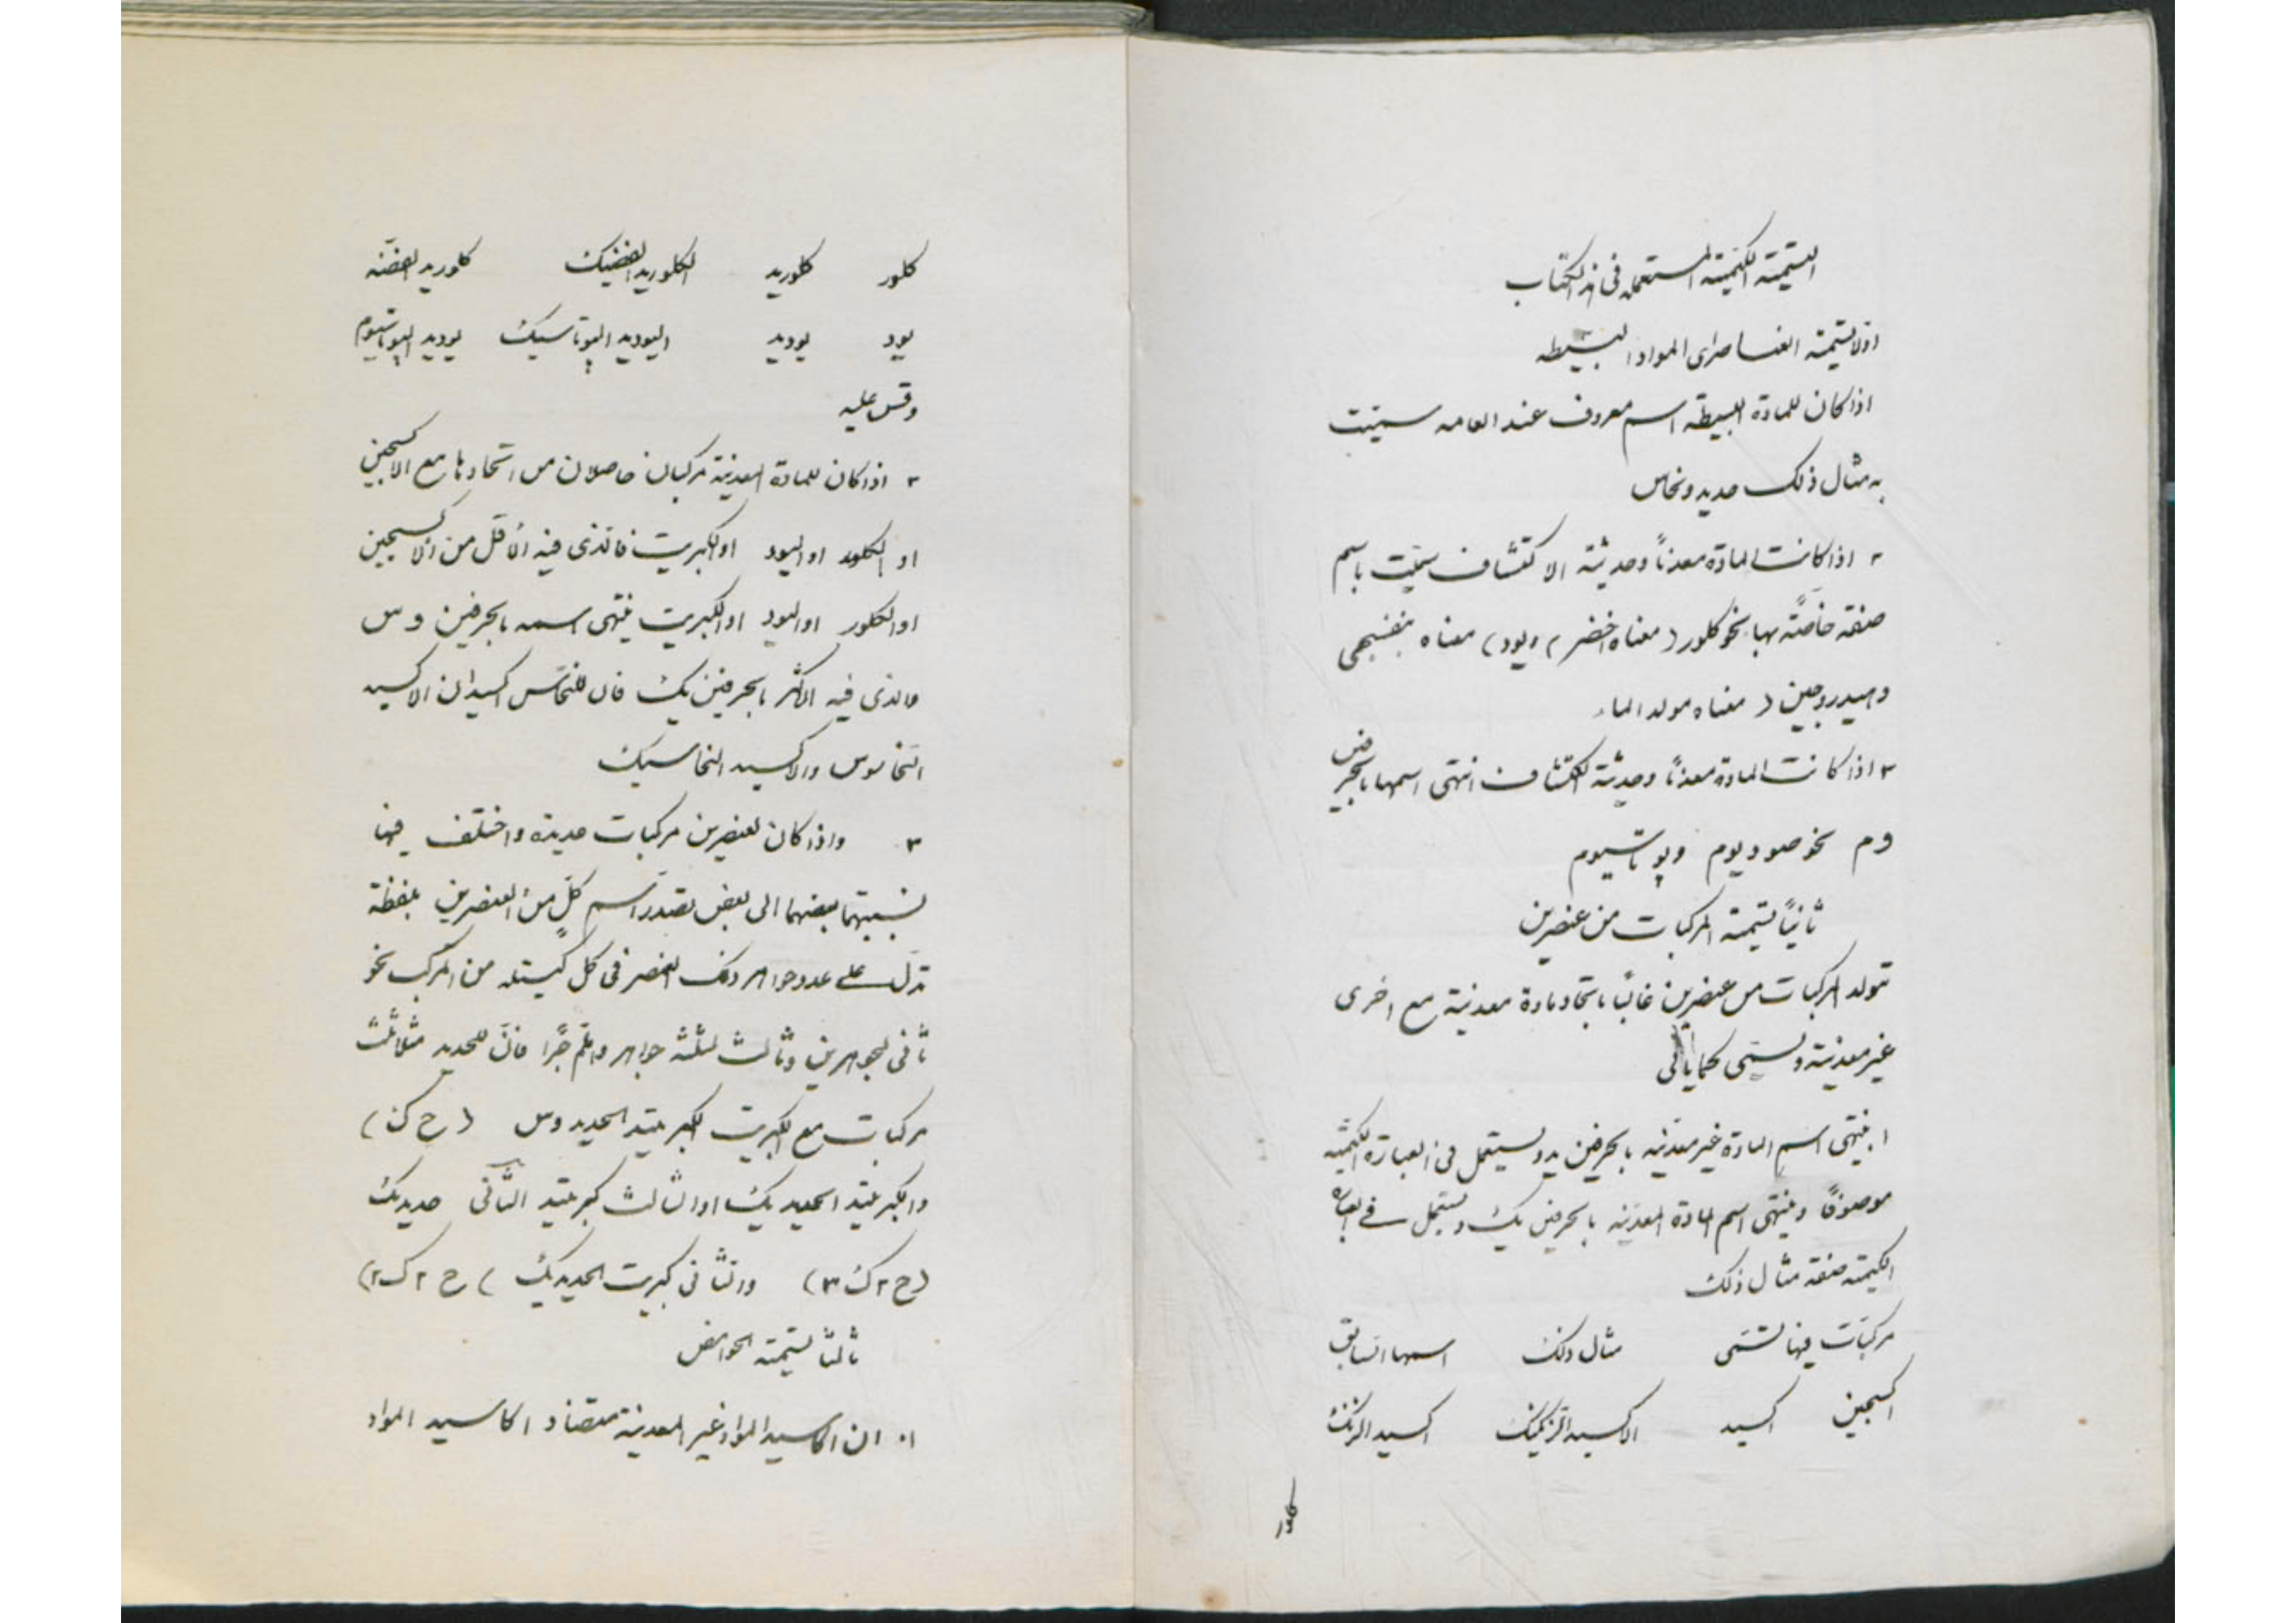 التسمية الكيمية المستعمله فى هذا الكتاب
اولا تسمية العناصر اى المواد البسيطه
اذا كان للمادة البسيطة اسم معروف عند العامه سميت
به مثال ذلك حديد ونحاس
٢ اذا كانت المادّه معدناً وحديثة الاكتشاف سمّيت باسم
صفة خاصّة بها نحو كلور (معناه اخضر) ويود) معناه بنفسجى
وهيدروجين ( معناه مولد الماء
٣ اذا كانت المادة معدناً وحديثة اكتشاف انتهى اسمها بالحرفين
وم نحو صوديوم وپوتاسيوم
ثانياً تسمية المركبات من عنصرين
تتولد المركبات من عنصرين غالباً باتحاد مادة معدنية مع اخرى
غير معدنية وتسمى كما ياتى
١ ينتهى اسم المادة غير معدنيه بالحرفين يد ويستعمل فى العبارة الكيميّه
موصوفاً وينتهى اسم المادة المعدنيه بالحرفين يك ويستعمل فى العبارة
الكيميّه صفة مثال ذلك
مركبات فيها تسمّى مثال ذلك اسمها السابق
اكسجين اكسيد الاكسيد الزنكيك اكسيد الزنك
كلور
كلور كلوريد الكلوريد الفضيك كلوريد الفضّه
يود يوديد اليوديد الپوتاسيك يوديد الپوتاسيوم
وقس عليه
٢ اذا كان للمادة المعدنية مركبان حاصلان من اتحادها مع الاكسجين
او الكلور او اليود او الكبريت فالذى فيه الاقل من الاكسجين
او الكلور او اليود او الكبريت ينتهى اسمه بالحرفين وس
والذى فيه الاكثر بالحرفين يك فان للنحاس اكسيدان الاكسيد
النحاسوس والاكسيد النحاسيك
٣ واذا كان لعنصرين مركبات عديدة واختلف فيها
نسبتهما بعضهما الى بعض تصدّر اسم كلّ من العنصرين بلفظة
تدلّ على عدد جواهر ذلك العنصر فى كل كيسله من المركب نحو
ثانى لجوهرين وثالث لثلثة جواهر وهلمّ جرّا فانّ للحديد مثلا ثلث
مركبات مع الكبريت الكبريتيد الحديدوس (ح ك)
والكبريتيد الحديديك او الثالث كبريتيد الثانى حديديك
(ح ٢ ك ٣) والثانى كبريت الحديديك ) ح ٢ ك ٢)
ثالثا تسمية الحوامض
١٠ ان اكاسيد المواد غير المعدنية متضاد اكاسيد المواد